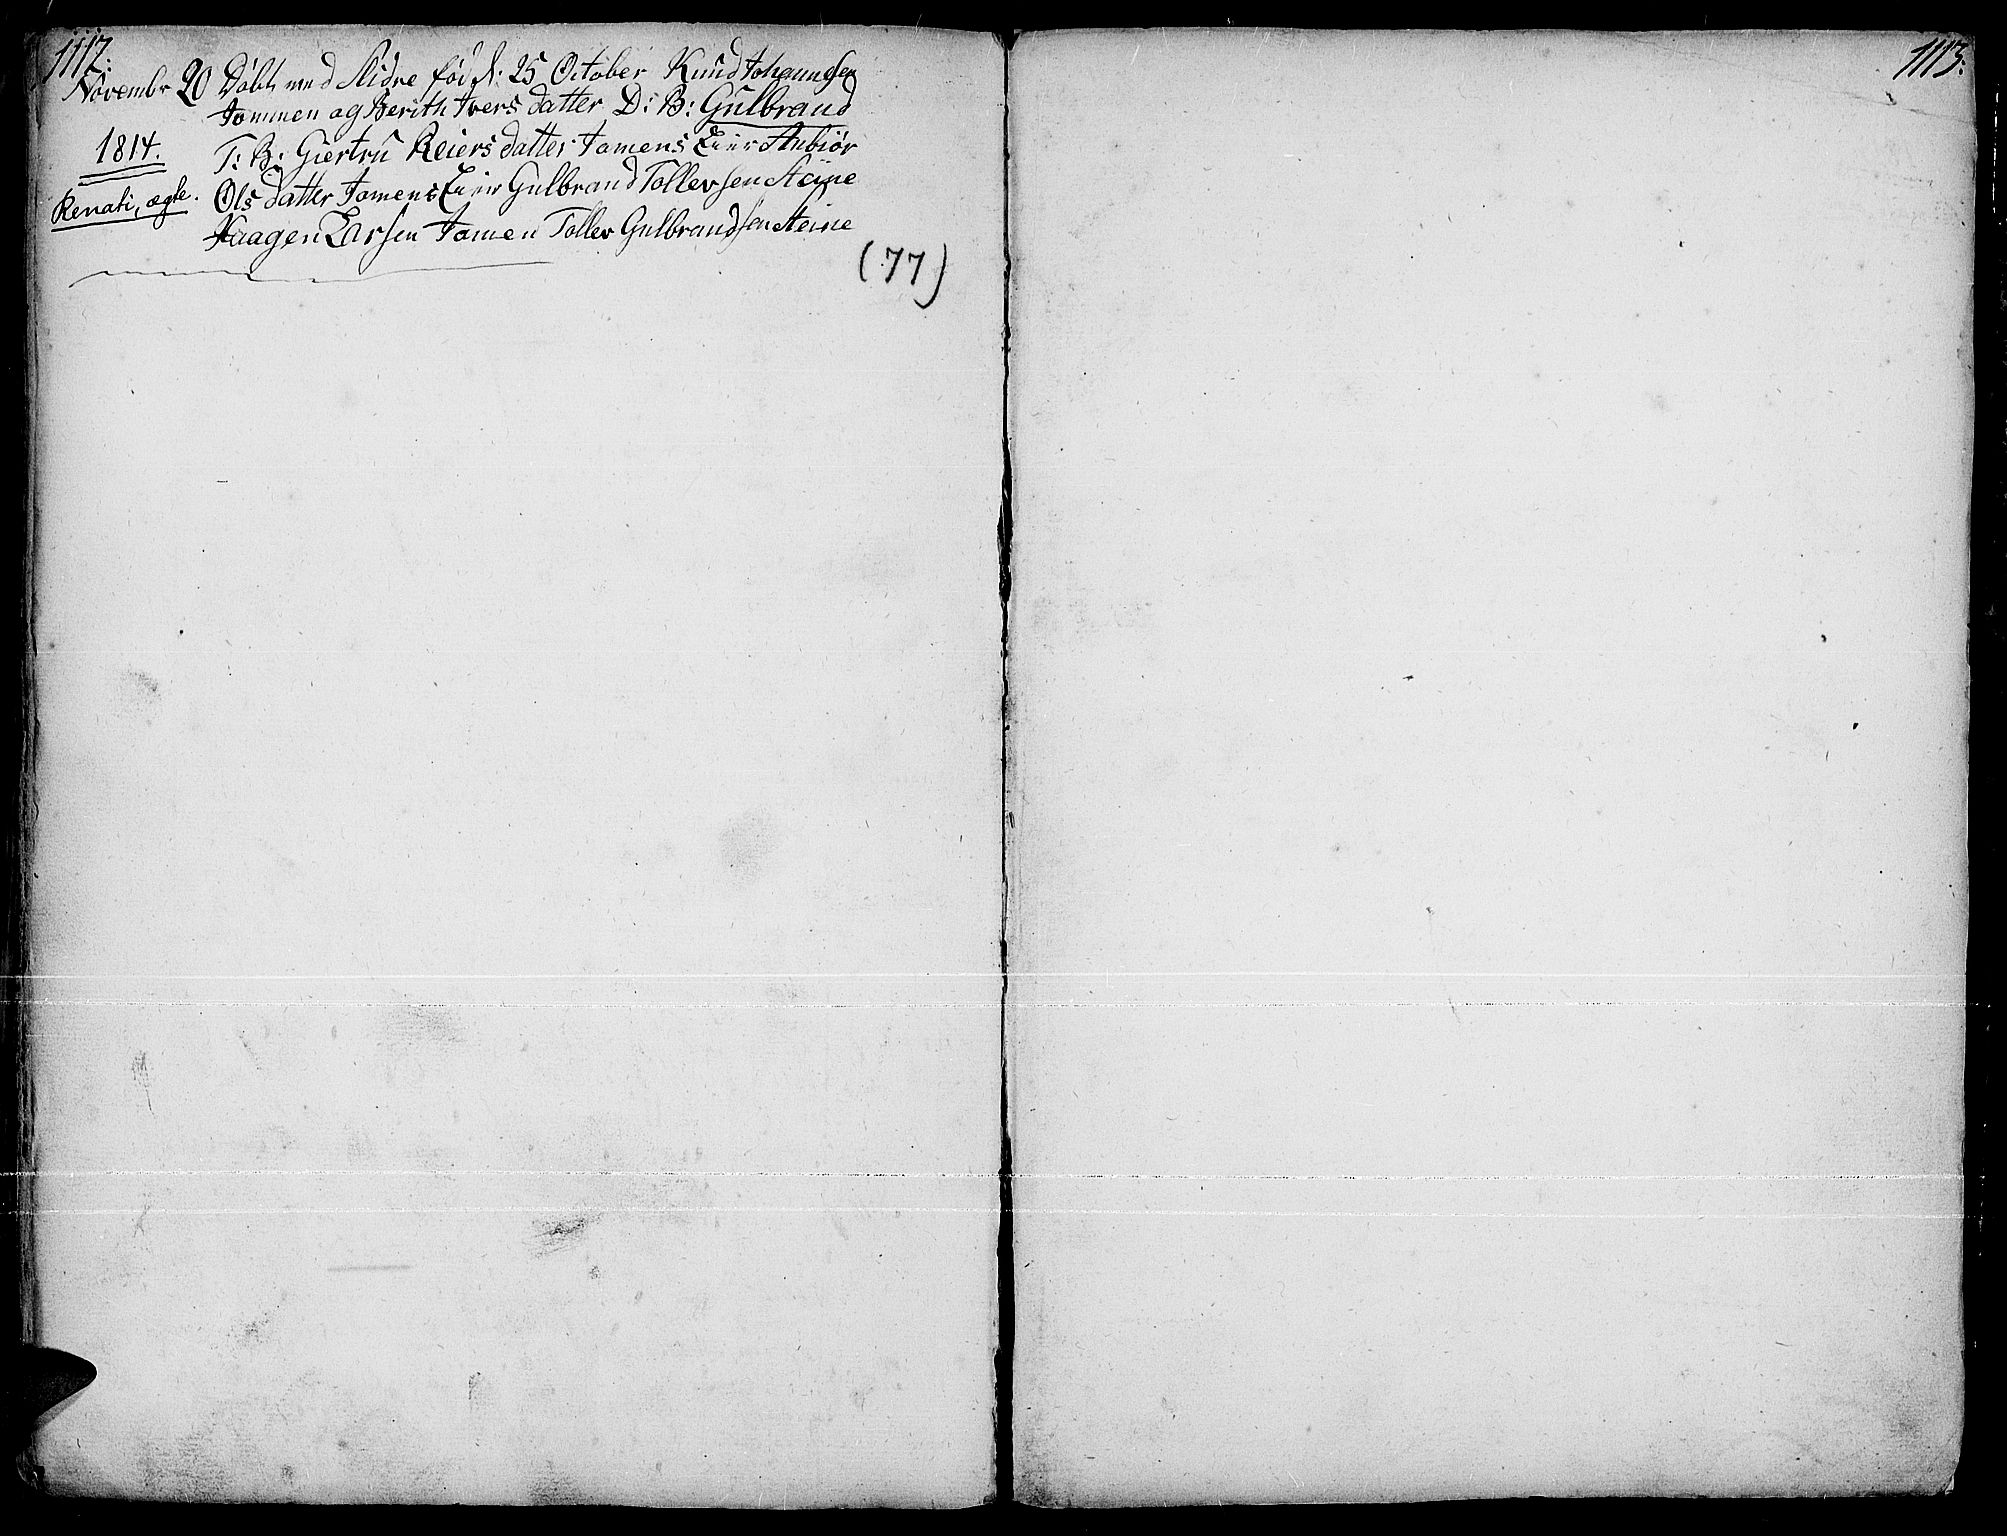 1112:
Novembr 20 Döbt ved Slidre föd d: 25 October Knud Johannesen
Jommen og Berith Ivers datter D: B: Gulbrand
1814. T: B: Giertru Reiers datter Jomens Eier Anbiör
Renati, ægte. Ols datter Jomens Eier Gulbrand Tollevsen Steine
Haagen Larsen Jomen Tollev Gulbrandsen Steine
(77)
1113: